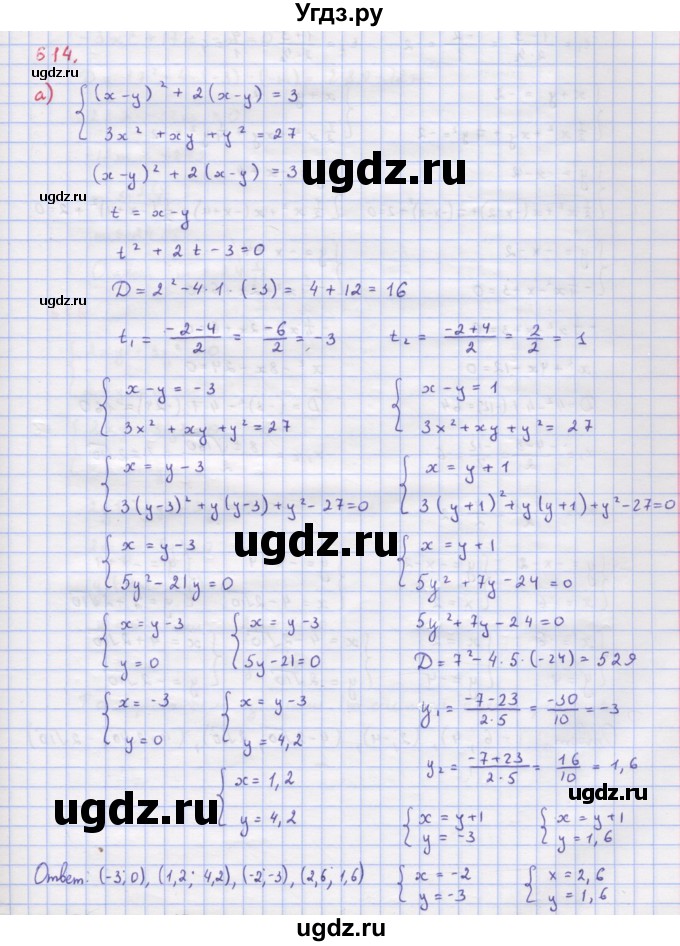 Угдз.ру
614.
ugdz.ru
а) { (x-y)² + 2(x-y) = 3
3x² + xy + y² = 27
(x-y)² + 2(x-y) = 3
ugdz.ru
ugdz.ru
t = x-y
t² + 2t - 3 = 0
ugdz.ru
D = 2² - 4·1·(-3) = 4 + 12 = 16
t₁ = (-2-4)/2 = -6/2 = -3     t₂ = (-2+4)/2 = 2/2 = 1
{ x-y = -3     { x-y = 1
3x² + xy + y² = 27     3x² + xy + y² = 27
{ x = y-3     { x = y+1
3(y-3)² + y(y-3) + y² - 27 = 0     3(y+1)² + y(y+1) + y² - 27 = 0
ugdz.ru
{ x = y-3     { x = y+1
5y² - 21y = 0     5y² + 7y - 24 = 0
{ x = y-3     { x = y-3     5y² + 7y - 24 = 0
y = 0     5y - 21 = 0     D = 7² - 4·5·(-24) = 529
{ x = -3     { x = y-3     y₁ = (-7-23)/(2·5) = -30/10 = -3
y = 0     y = 4,2
y₂ = (-7+23)/(2·5) = 16/10 = 1,6
{ x = 1,2
y = 4,2
ugdz.ru
ugdz.ru
{ x = y+1     { x = y+1
y = -3     y = 1,6
Ответ: (-3; 0), (1,2; 4,2), (-2; -3), (2,6; 1,6)     { x = -2     { x = 2,6
y = -3     y = 1,6
ugdz.ru